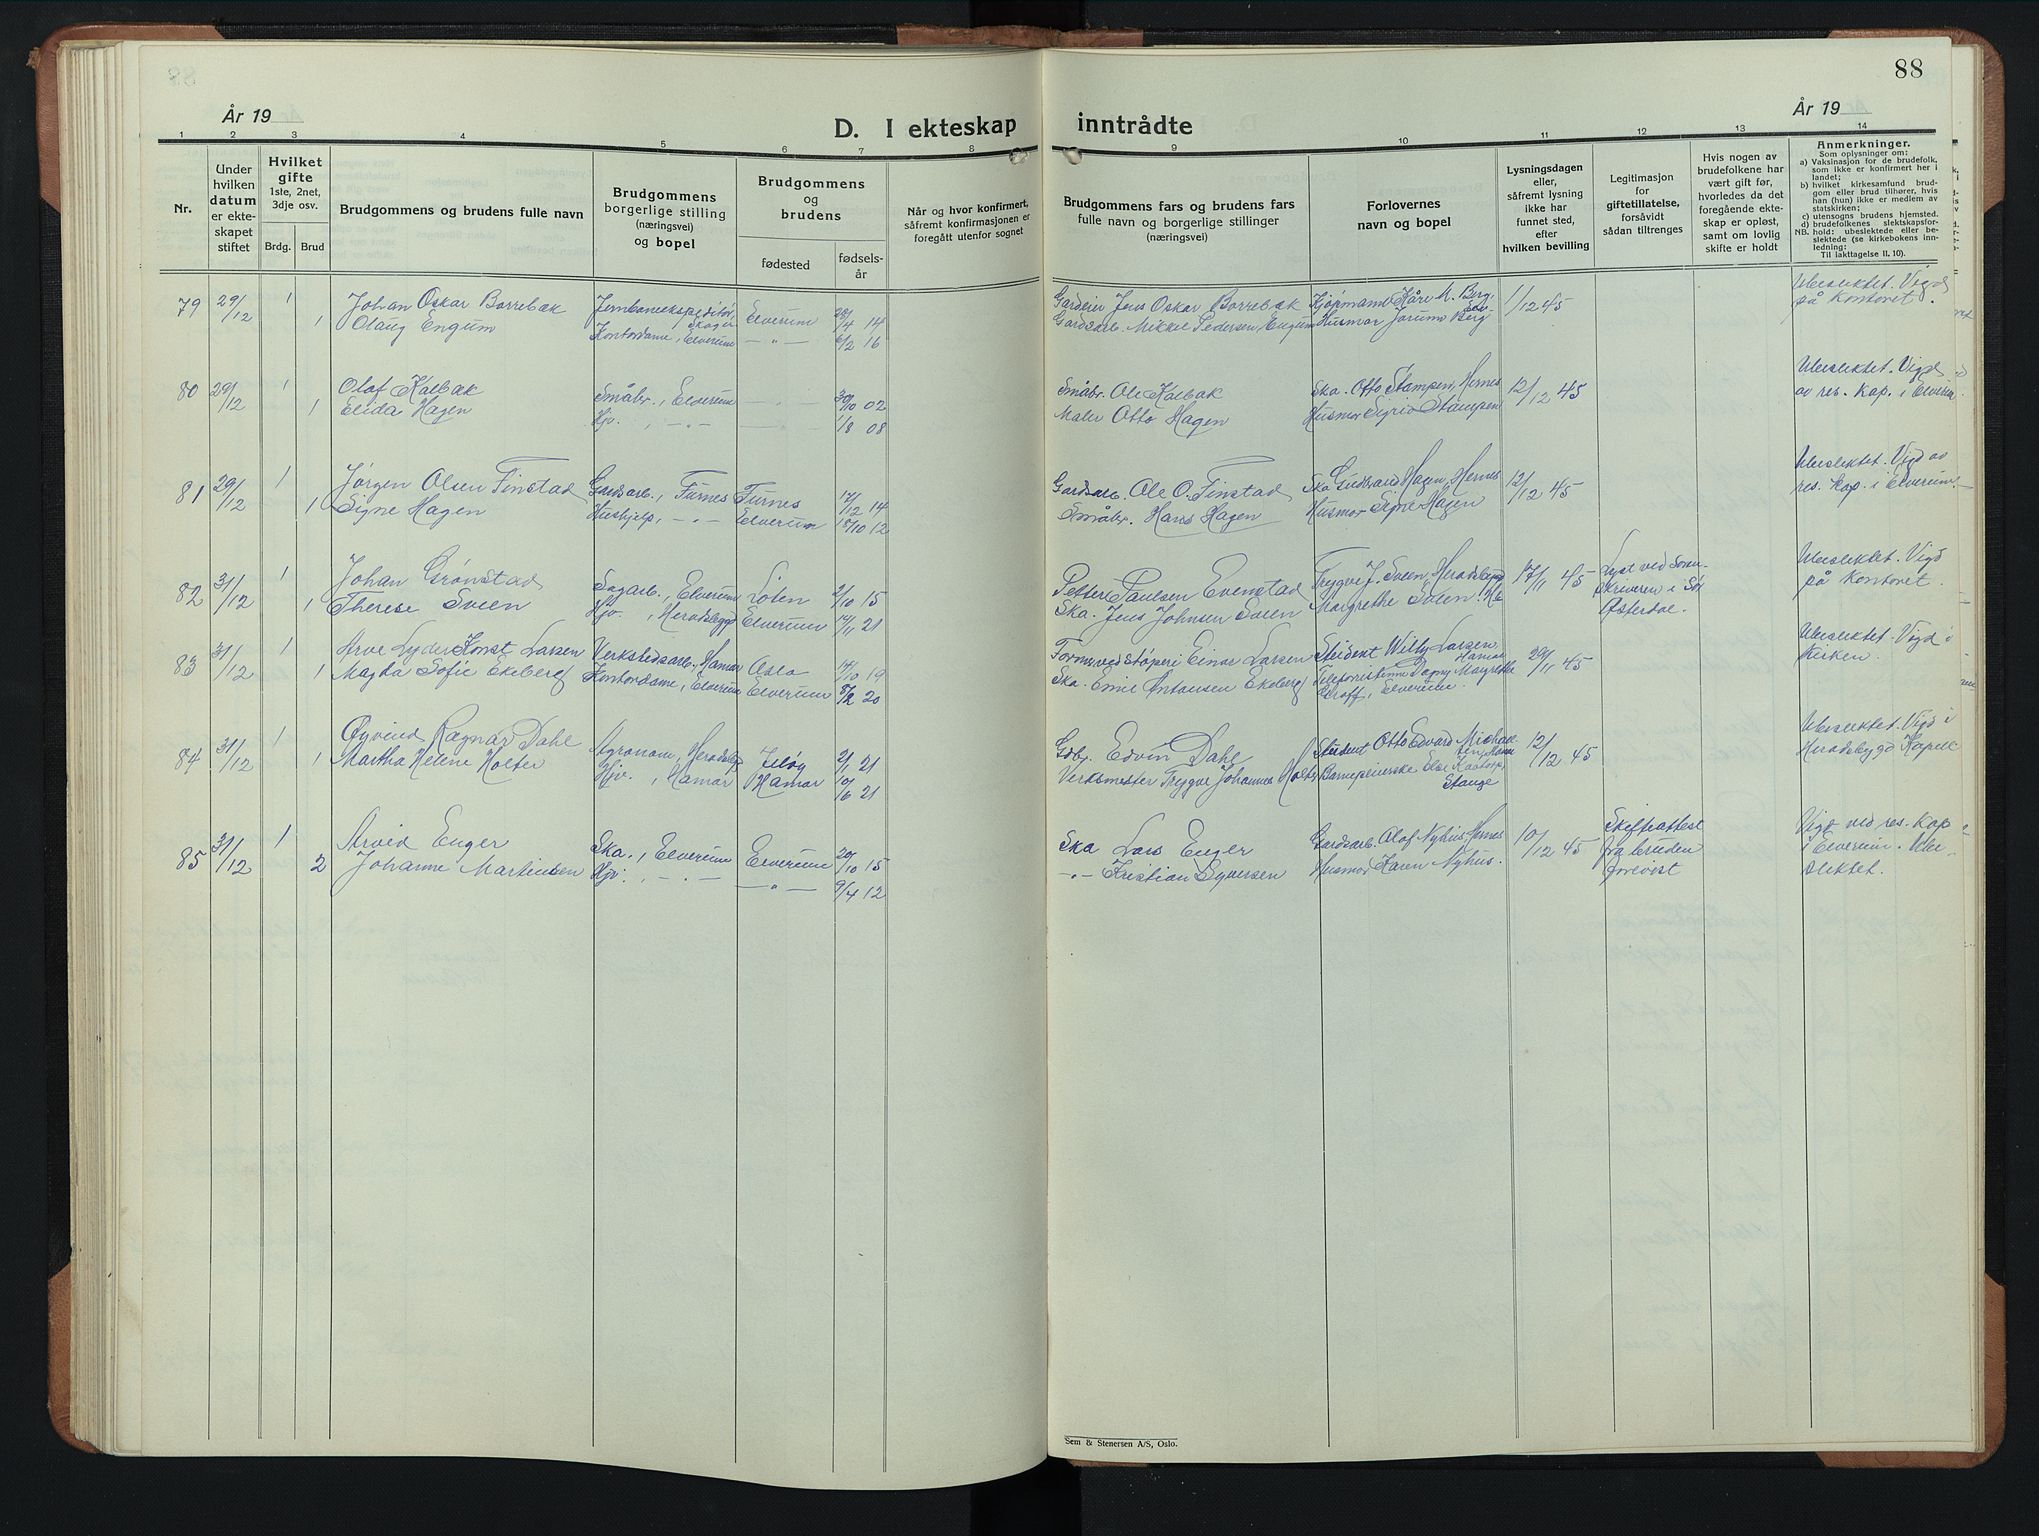 88
År 19
År 19
D. I ekteskap inntrådte
1 2 3 4 5 6 7 8 9 10 11 12 13 14
Nr.
Under hvilken datum er ekteskapet stiftet
Hvilket gifte
1ste, 2net, 3dje osv.
Brdg. Brud
Brudgommens og brudens fulle navn
Brudgommens borgerlige stilling (næringsvei) og bopel
Brudgommens og brudens
fødested
fødselsår
Når og hvor konfirmert, såfremt konfirmasjonen er foregått utenfor sognet
Brudgommens fars og brudens fars fulle navn og borgerlige stillinger (næringsvei)
Forlovernes navn og bopel
Lysningsdagen eller, såfremt lysning ikke har funnet sted, efter hvilken bevilling
Legitimasjon for giftetillatelse, forsåvidt sådan tiltrenges
Hvis nogen av brudefolkene har vært gift før, hvorledes da det foregående ekteskap er opløst, samt om lovlig skifte er holdt
Anmerkninger.
Som oplysninger om:
a) Vaksinasjon for de brudefolk, som ikke er konfirmert her i landet;
b) hvilket kirkesamfund brudgom eller brud tilhører, hvis han (hun) ikke er medlem av statskirken;
c) utensogns brudens hjemsted.
d) brudefolkenes slektskapsforhold: ubeslektede eller beslektede (se kirkebokens innledning:
NB. Til iakttagelse II. 10).
79 29/12 1 Johan Oskar Borrebæk Jernbaneekspeditør, Elverum 28/4 14 Gardeier Jens Oskar Borrebæk Kjøpmann Kåre M. Berg, 1/12 45 Ubeslektet. Vigd
1 Olaug Engum Kontordame, Elverum —"— 6/2 16 Gardsarb. Mikkel Pedersen Engum Husmor Jorunn Berg på kontoret.
80 29/12 1 Olaf Kalbæk Småbr., Elverum —"— 30/10 02 Småbr. Ole Kalbæk Ska. Otto Stampen, Hernes 12/12 45 Ubeslektet. Vigd
1 Elida Hagen Hjv. , —"— —"— 1/8 08 Maler Otto Hagen Husmor Sigrid Stampen av res. kap. i Elverum
81 29/12 1 Jørgen Olsen Finstad Gardsarb., Furnes Furnes 17/12 14 Gardsarb. Ole O. Finstad Ska Gudbrand Hagen, Hernes 12/12 45 Ubeslektet. Vigd av
1 Signe Hagen Hushjelp, —"— Elverum 18/10 12 Småbr. Hans Hagen Husmor Signe Hagen res. kap. i Elverum.
82 31/12 1 Johan Grønstad Sagarb., Elverum Løten 2/10 15 Petter Paulsen Evenstad Trygve J. Sveen, Heradsbygd 17/11 45 Lyst ved Soren- Ubeslektet. Vigd
1 Therese Sveen Hjv. , Heradsbygd Elverum 14/11 21 Ska. Jens Johnsen Sveen Margrethe Sveen skriveren i Sør på kontoret.
Østerdal.
83 31/12 1 Arve Lyder Konst Larsen Verkstedsarb. Hamar Oslo 14/10 19 Formsvedstøperi Einar Larsen Student Willy Larsen, Hamar 29/11 45 Ubeslektet. Vigd i
1 Magda Sofie Ekeberg Kontordame, Elverum Elverum 8/2 20 Ska. Emil Antonsen Ekeberg Telefonistinne Dagny Margrethe kirken.
Groff, Elverum.
84 31/12 1 Øyvind Ragnar Dahl Agronom, Heradsbygd Jeløy 2/1 21 Gdbr. Edvin Dahl Student Otto Edvard Michael- 12/12 45 Ubeslektet. Vigd i
1 Martha Helene Holter Hjv. , Hamar Hamar 10/6 21 Verksmester Trygve Johannes Holter Barnepleierske Else Kaatorp, Heradsbygd Kapell
Stange
85 31/12 1 Arvid Enger Ska. , Elverum Elverum 20/10 15 Ska Lars Enger Gardsarb. Olaf Nyhus, Hernes 10/12 45 Skifteattest Vigd ved res. kap
2 Johanne Martinsen Hjv. , —"— —"— 9/4 12 —"— Kristian Syversen Husmor Karen Nyhus. fra bruden i Elverum. Ube-
forevist slektet.
Sem & Stenersen A/S, Oslo.